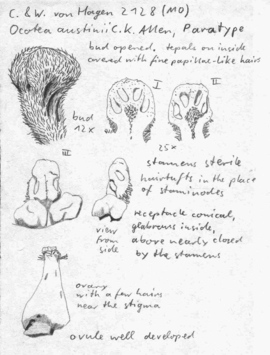 C. & W. von Hagen 2128 (MO)
Ocotea austinii C.K. Allen, Paratype
bud opened, tepals on inside
covered with fine papillae-like hairs
I
II
bud
12x
25x
III
stamens sterile
hairtufts in the place
of staminodes
view
from
side
receptacle conical,
glabrous inside,
above nearly closed
by the stamens
ovary
with a few hairs
near the stigma
ovule well developed